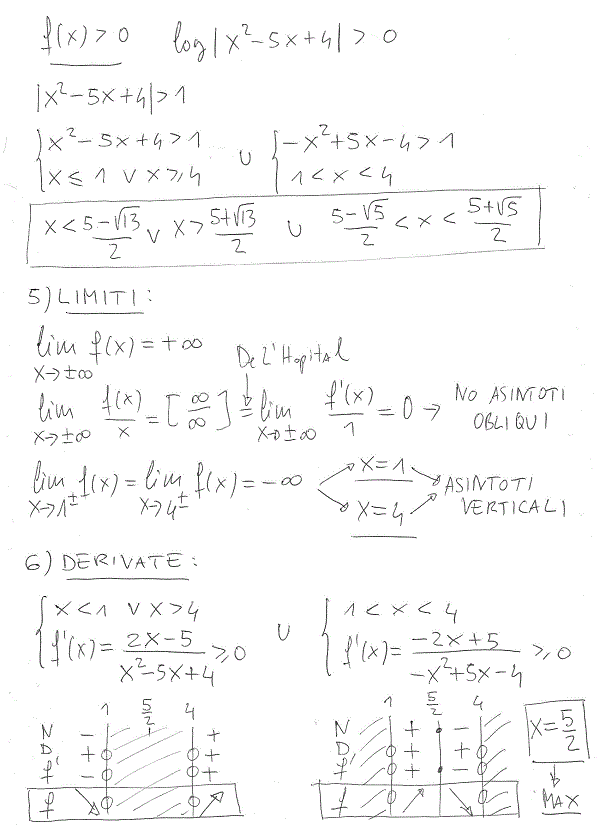 f(x) > 0   log|x²-5x+4| > 0
|x²-5x+4| > 1
{x²-5x+4 > 1   ∪   {-x²+5x-4 > 1
{x ≤ 1 ∨ x ≥ 4   {1 < x < 4
x < (5-√13)/2 ∨ x > (5+√13)/2   ∪   (5-√5)/2 < x < (5+√5)/2
5) LIMITI:
lim x→±∞ f(x) = +∞
De L'Hopital
lim x→±∞ f(x)/x = [∞/∞] = lim x→±∞ f'(x)/1 = 0 → NO ASINTOTI OBLIQUI
lim x→1± f(x) = lim x→4± f(x) = -∞   x=1   x=4   ASINTOTI VERTICALI
6) DERIVATE:
{x < 1 ∨ x > 4   ∪   {1 < x < 4
{f'(x) = (2x-5)/(x²-5x+4) ≥ 0   {f'(x) = (-2x+5)/(-x²+5x-4) ≥ 0
1   5/2   4   1   5/2   4
N   -   +   N   +   -
D   +   +   D   +   +
f'   -   +   f'   +   -
f   ↘   ↗   f   ↗   ↘
x = 5/2
↓
MAX